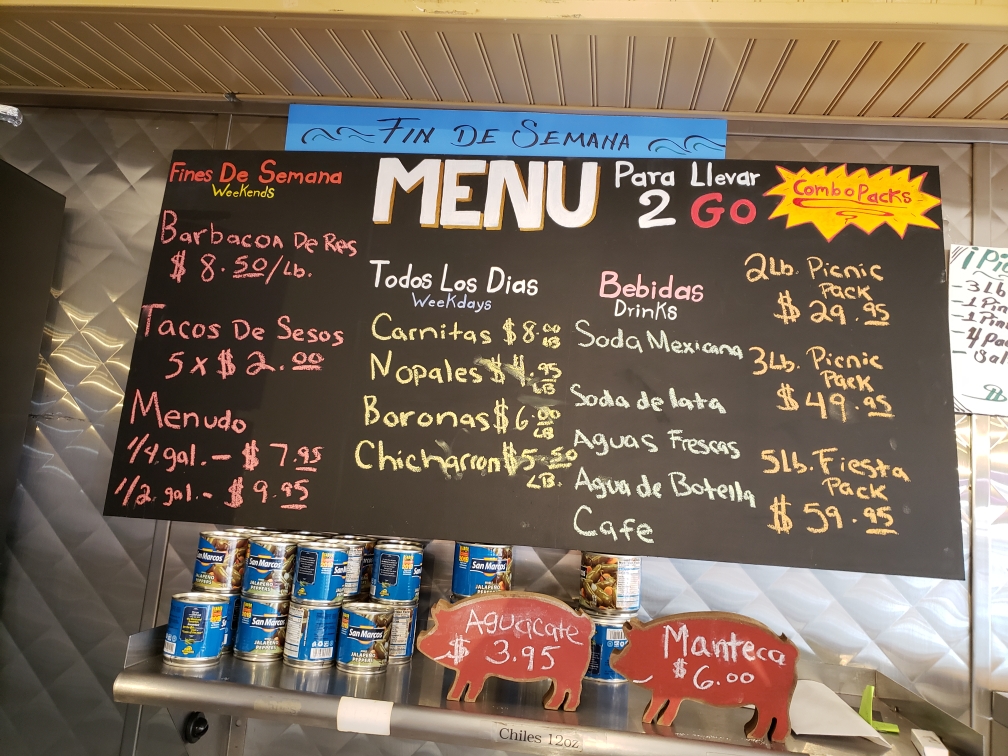 FIN DE SEMANA
Fines De Semana
Weekends
Barbacoa De Res
$ 8.50/Lb.
Tacos De Sesos
5 x $ 2.00
Menudo
1/4 gal. - $ 7.95
1/2 gal. - $ 9.95
MENU
Todos Los Dias
Weekdays
Carnitas $ 8.00 LB
Nopales $ 4.95 LB
Boronas $ 6.00 LB
Chicharron $ 5.50 LB.
Para Llevar
2 Go
Bebidas
Drinks
Soda Mexicana
Soda de lata
Aguas Frescas
Agua de Botella
Cafe
Combo Packs
2Lb. Picnic
Pack
$ 29.95
3Lb. Picnic
Pack
$ 49.95
5Lb. Fiesta
Pack
$ 59.95
San Marcos
JALAPEÑO
PEPPERS
San Marcos
San Marcos
San Marcos
San Marcos
JALAPEÑO
PEPPERS
San Marcos
JALAPEÑO
PEPPERS
Aguacate
$ 3.95
Manteca
$ 6.00
Chiles 12oz